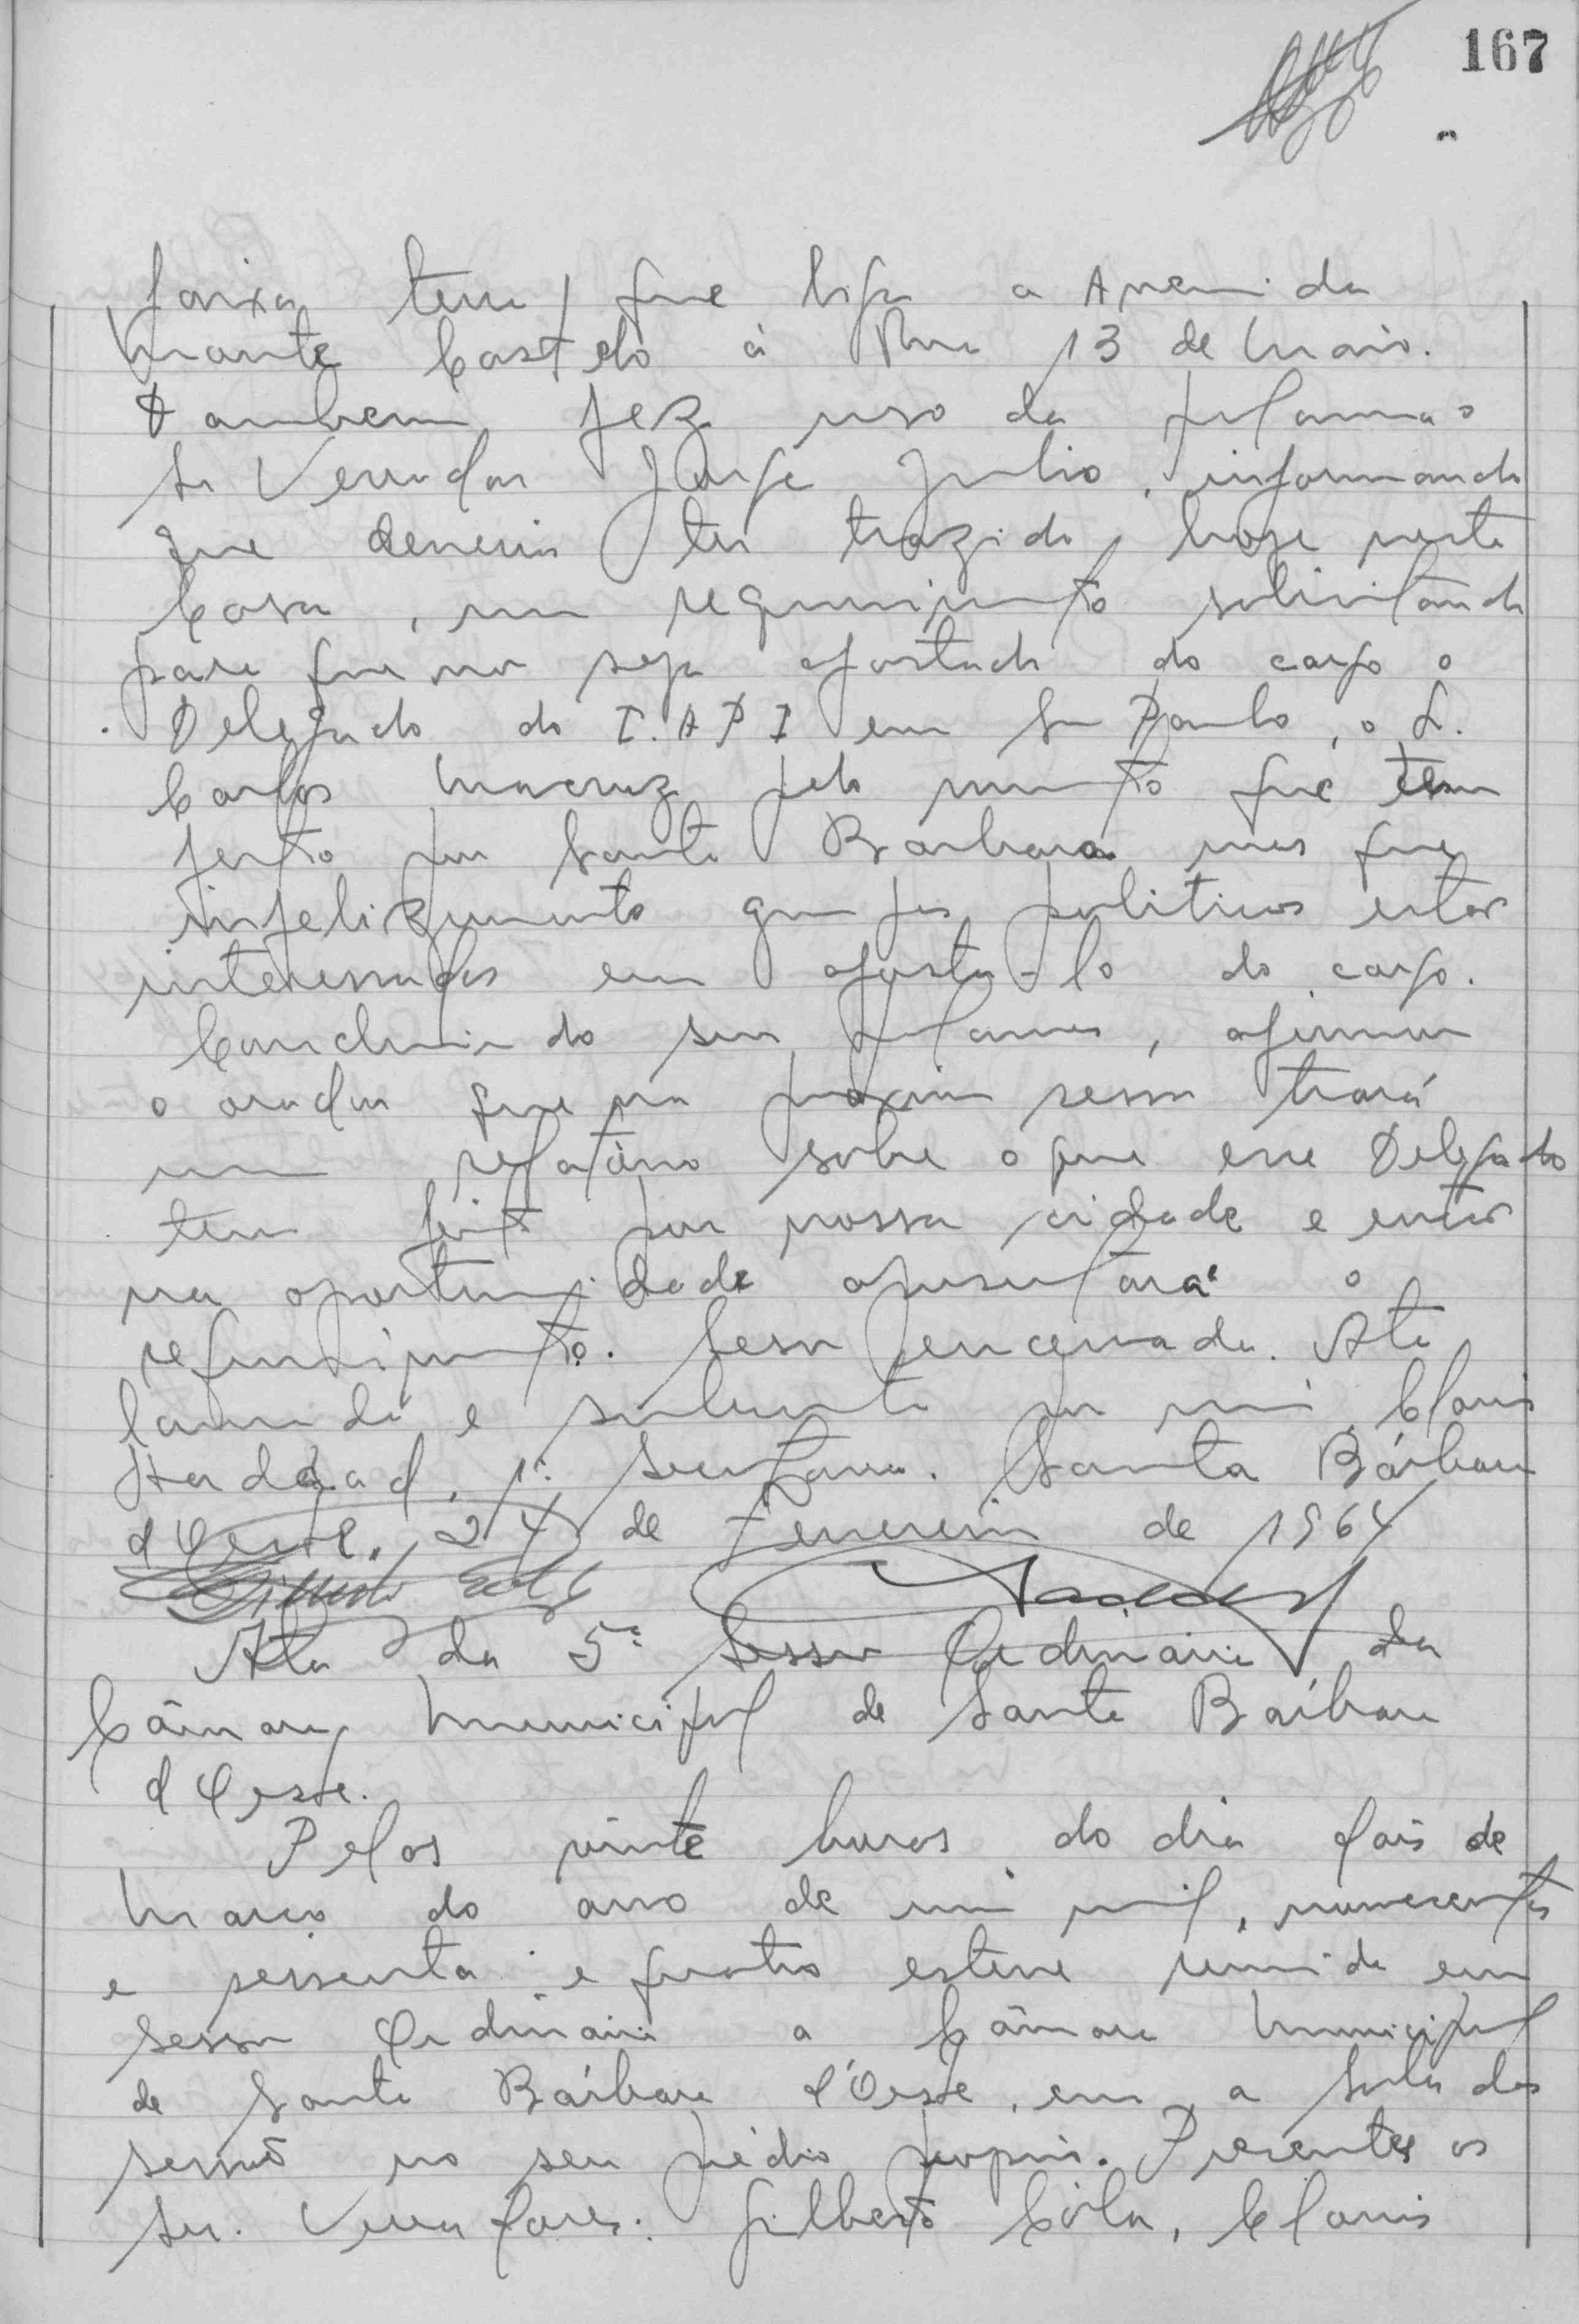 167
faixa terra que liga a Avenida
Monte Castelo à Rua 13 de Maio.
Tambem fez uso da palavra o
Sr Vereador Jorge Julio, informando
que deveria ter trazido hoje nesta
Casa, um requerimento solicitando
para que não seja afastado do cargo o
Delegado do I.A P I em São Paulo, o S.
Carlos Macruz pelo muito que tem
feito por Santa Barbara mas que
infelizmente grupos politicos estão
interessados em afasta-lo do cargo.
Concluindo sua palavra, afirmou
o orador que na proxima sessão trará
um relatório sobre o que esse Delegado
tem feito por nossa cidade e então
na oportunidade apresentará o
requerimento. Sessão encerrada. Ata
lavrada e subscrita por mim Clovis
Haddad, 1º Secretario. Santa Bárbara
d'Oeste, 24 de Fevereiro de 1964
Haddad
Ata da 5ª Sessão Ordinária da
Câmara Municipal de Santa Bárbara
d'Oeste.
Pelas vinte horas do dia dois de
Março do ano de um mil, novecentos
e sessenta e quatro esteve reunida em
sessão Ordinária a Câmara Municipal
de Santa Bárbara d'Oeste, em a sala das
sessões no seu prédio proprio. Presentes os
Srs. Vereadores: Gilberto Côla, Clovis